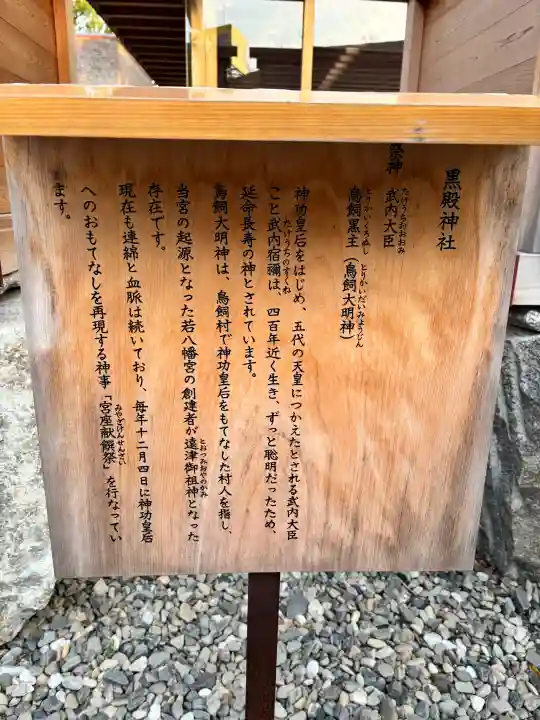 黒殿神社
祭神 武内大臣
たけうちおおおみ
鳥飼黒主（鳥飼大明神）
とりかいくろぬし とりかいだいみょうじん
神功皇后をはじめ、五代の天皇につかえたとされる武内大臣
こと武内宿禰は、四百年近く生き、ずっと聡明だったため、
たけうちのすくね
延命長寿の神とされています。
鳥飼大明神は、鳥飼村で神功皇后をもてなした村人を指し、
当宮の起源となった若八幡宮の創建者が遠津御祖神となった
とおつみおやのかみ
存在です。
現在も連綿と血脈は続いており、毎年十二月四日に神功皇后
へのおもてなしを再現する神事「宮座献饌祭」を行なってい
みやざけんせんさい
ます。